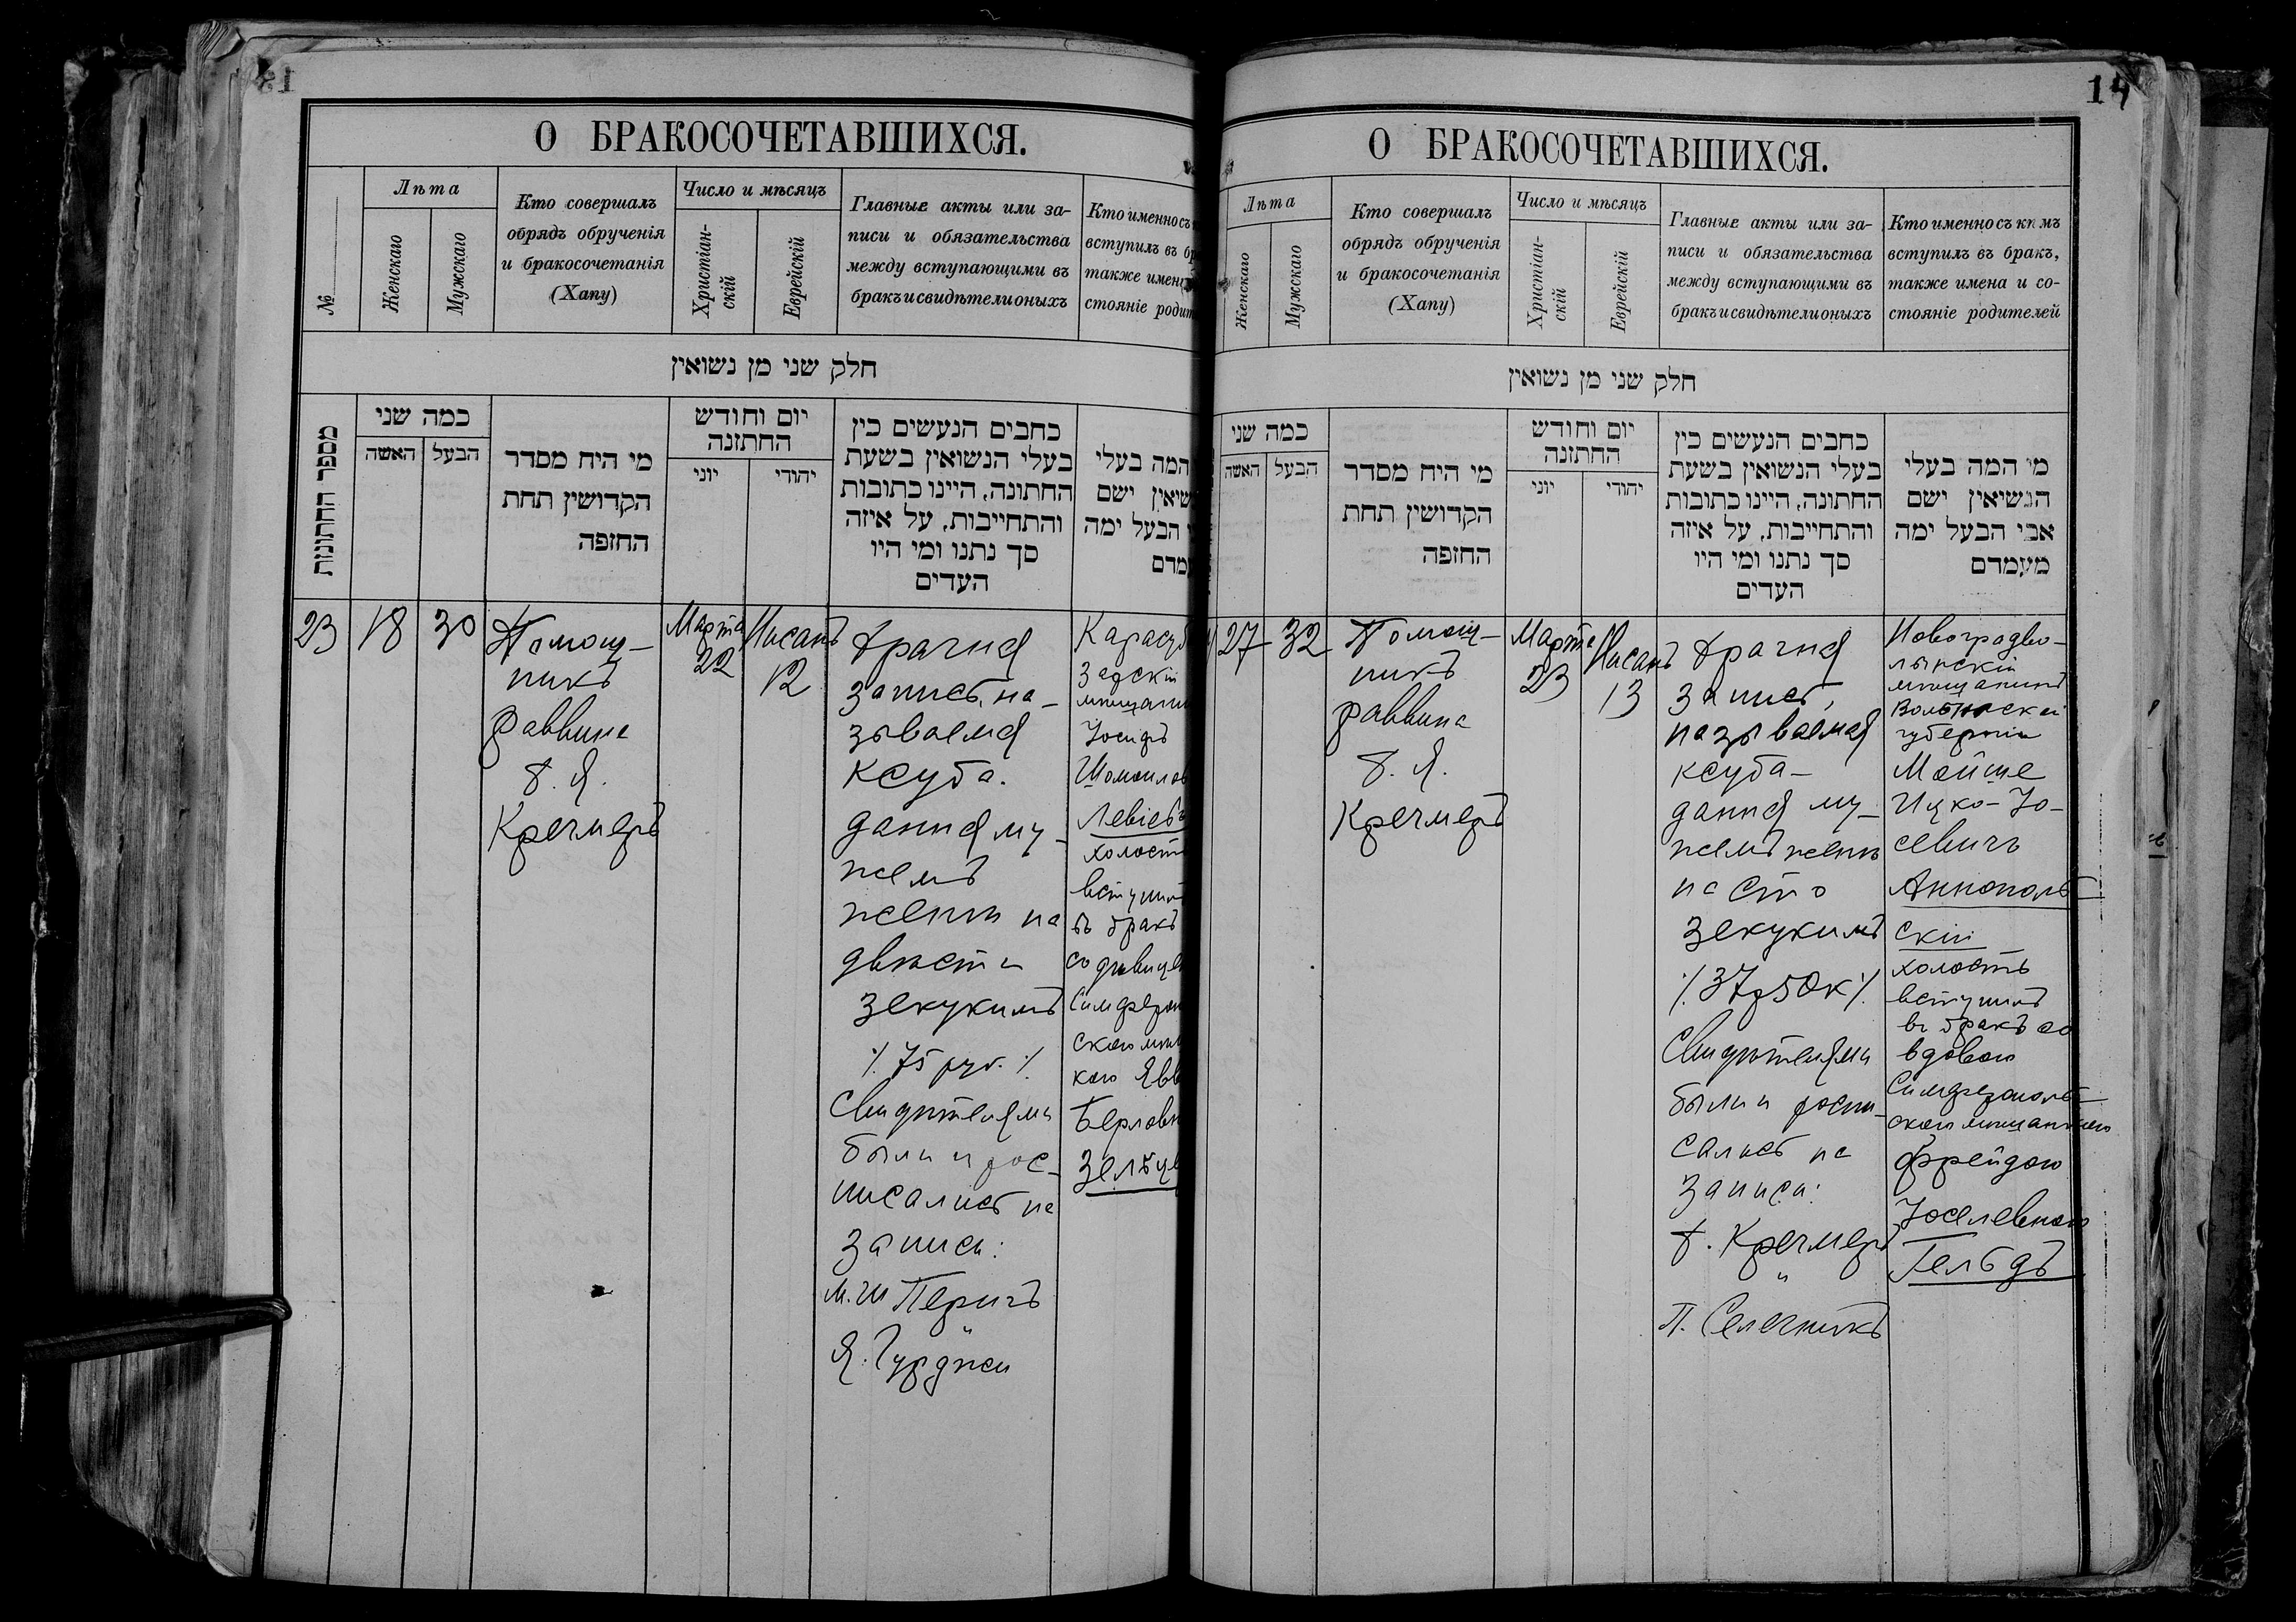 О БРАКОСОЧЕТАВШИХСЯ.
№
Лѣта
Женскаго
Мужскаго
Кто совершалъ
обрядъ обрученія
и бракосочетанія
(Хапу)
Число и мѣсяцъ
Христіан-
скій
Еврейскій
Главные акты или за-
писи и обязательства
между вступающими въ
бракъ и свидѣтели оныхъ
Кто именно съ
вступилъ въ
также
стояніе
חלק שני מן נשואין
מספר החתונות
כמה שני
האשה
הבעל
מי היח מסדר
הקדושין תחת
החופה
יום וחודש
החתונה
יוני
יהודי
כתבים הנעשים בין
בעלי הנשואין בשעת
החתונה, היינו כתובות
והתחייבות, על איזה
סך נתנו ומי היו
העדים
המה בעלי
ישם
הבעל ימה
23
18
30
Помощ-
никъ
раввина
Я.
Кречмеръ
Марта
22
Нисанъ
12
Брачная
запись, на-
зываемая
ксуба.
данная му-
жемъ
женѣ на
двѣсти
зекукимъ
/. 75 руб. /.
Свидѣтелями
были и рос-
писались на
записи:
М. Ш Перичъ
"
Я. Гурджи
Карасуб
Задскій
мѣщани
Іосифъ
Шомоилов
Левіевъ
холостъ
вступилъ
въ бракъ
со дѣвицею
Симферопол
скою мѣщ
кою Явв
Берловн
Зельце
14
О БРАКОСОЧЕТАВШИХСЯ.
Лѣта
Женскаго
Мужскаго
Кто совершалъ
обрядъ обрученія
и бракосочетанія
(Хапу)
Число и мѣсяцъ
Христіан-
скій
Еврейскій
Главные акты или за-
писи и обязательства
между вступающими въ
бракъ и свидѣтели оныхъ
Кто именно съ кѣмъ
вступилъ въ бракъ,
также имена и со-
стояніе родителей
חלק שני מן נשואין
כמה שני
האשה
הבעל
מי היח מסדר
הקדושין תחת
החופה
יום וחודש
החתונה
יוני
יהודי
כתבים הנעשים בין
בעלי הנשואין בשעת
החתונה, היינו כתובות
והתחייבות, על איזה
סך נתנו ומי היו
העדים
מי המה בעלי
הנשיאין ישם
אבי הבעל ימה
מעמדם
27
32
Помощ-
никъ
раввина
Я.
Кречмеръ
Марта
23
Нисанъ
13
Брачная
запись,
называемая
ксуба-
данная му-
жемъ женѣ
на сто
зекукимъ
/. 37р 50к /.
Свидѣтелями
были и роспи-
сались на
записи:
Кречмеръ
"
П. Селечникъ
Новоградво-
лынскій
мѣщанинъ
Волынской
губерніи
Мойше
Ицко-Іо-
севичъ
Аннополь-
скій
холостъ
вступилъ
въ бракъ со
вдовою
Симферополь-
скою мѣщанкою
Фрейдою
Іоселевною
Гельдъ